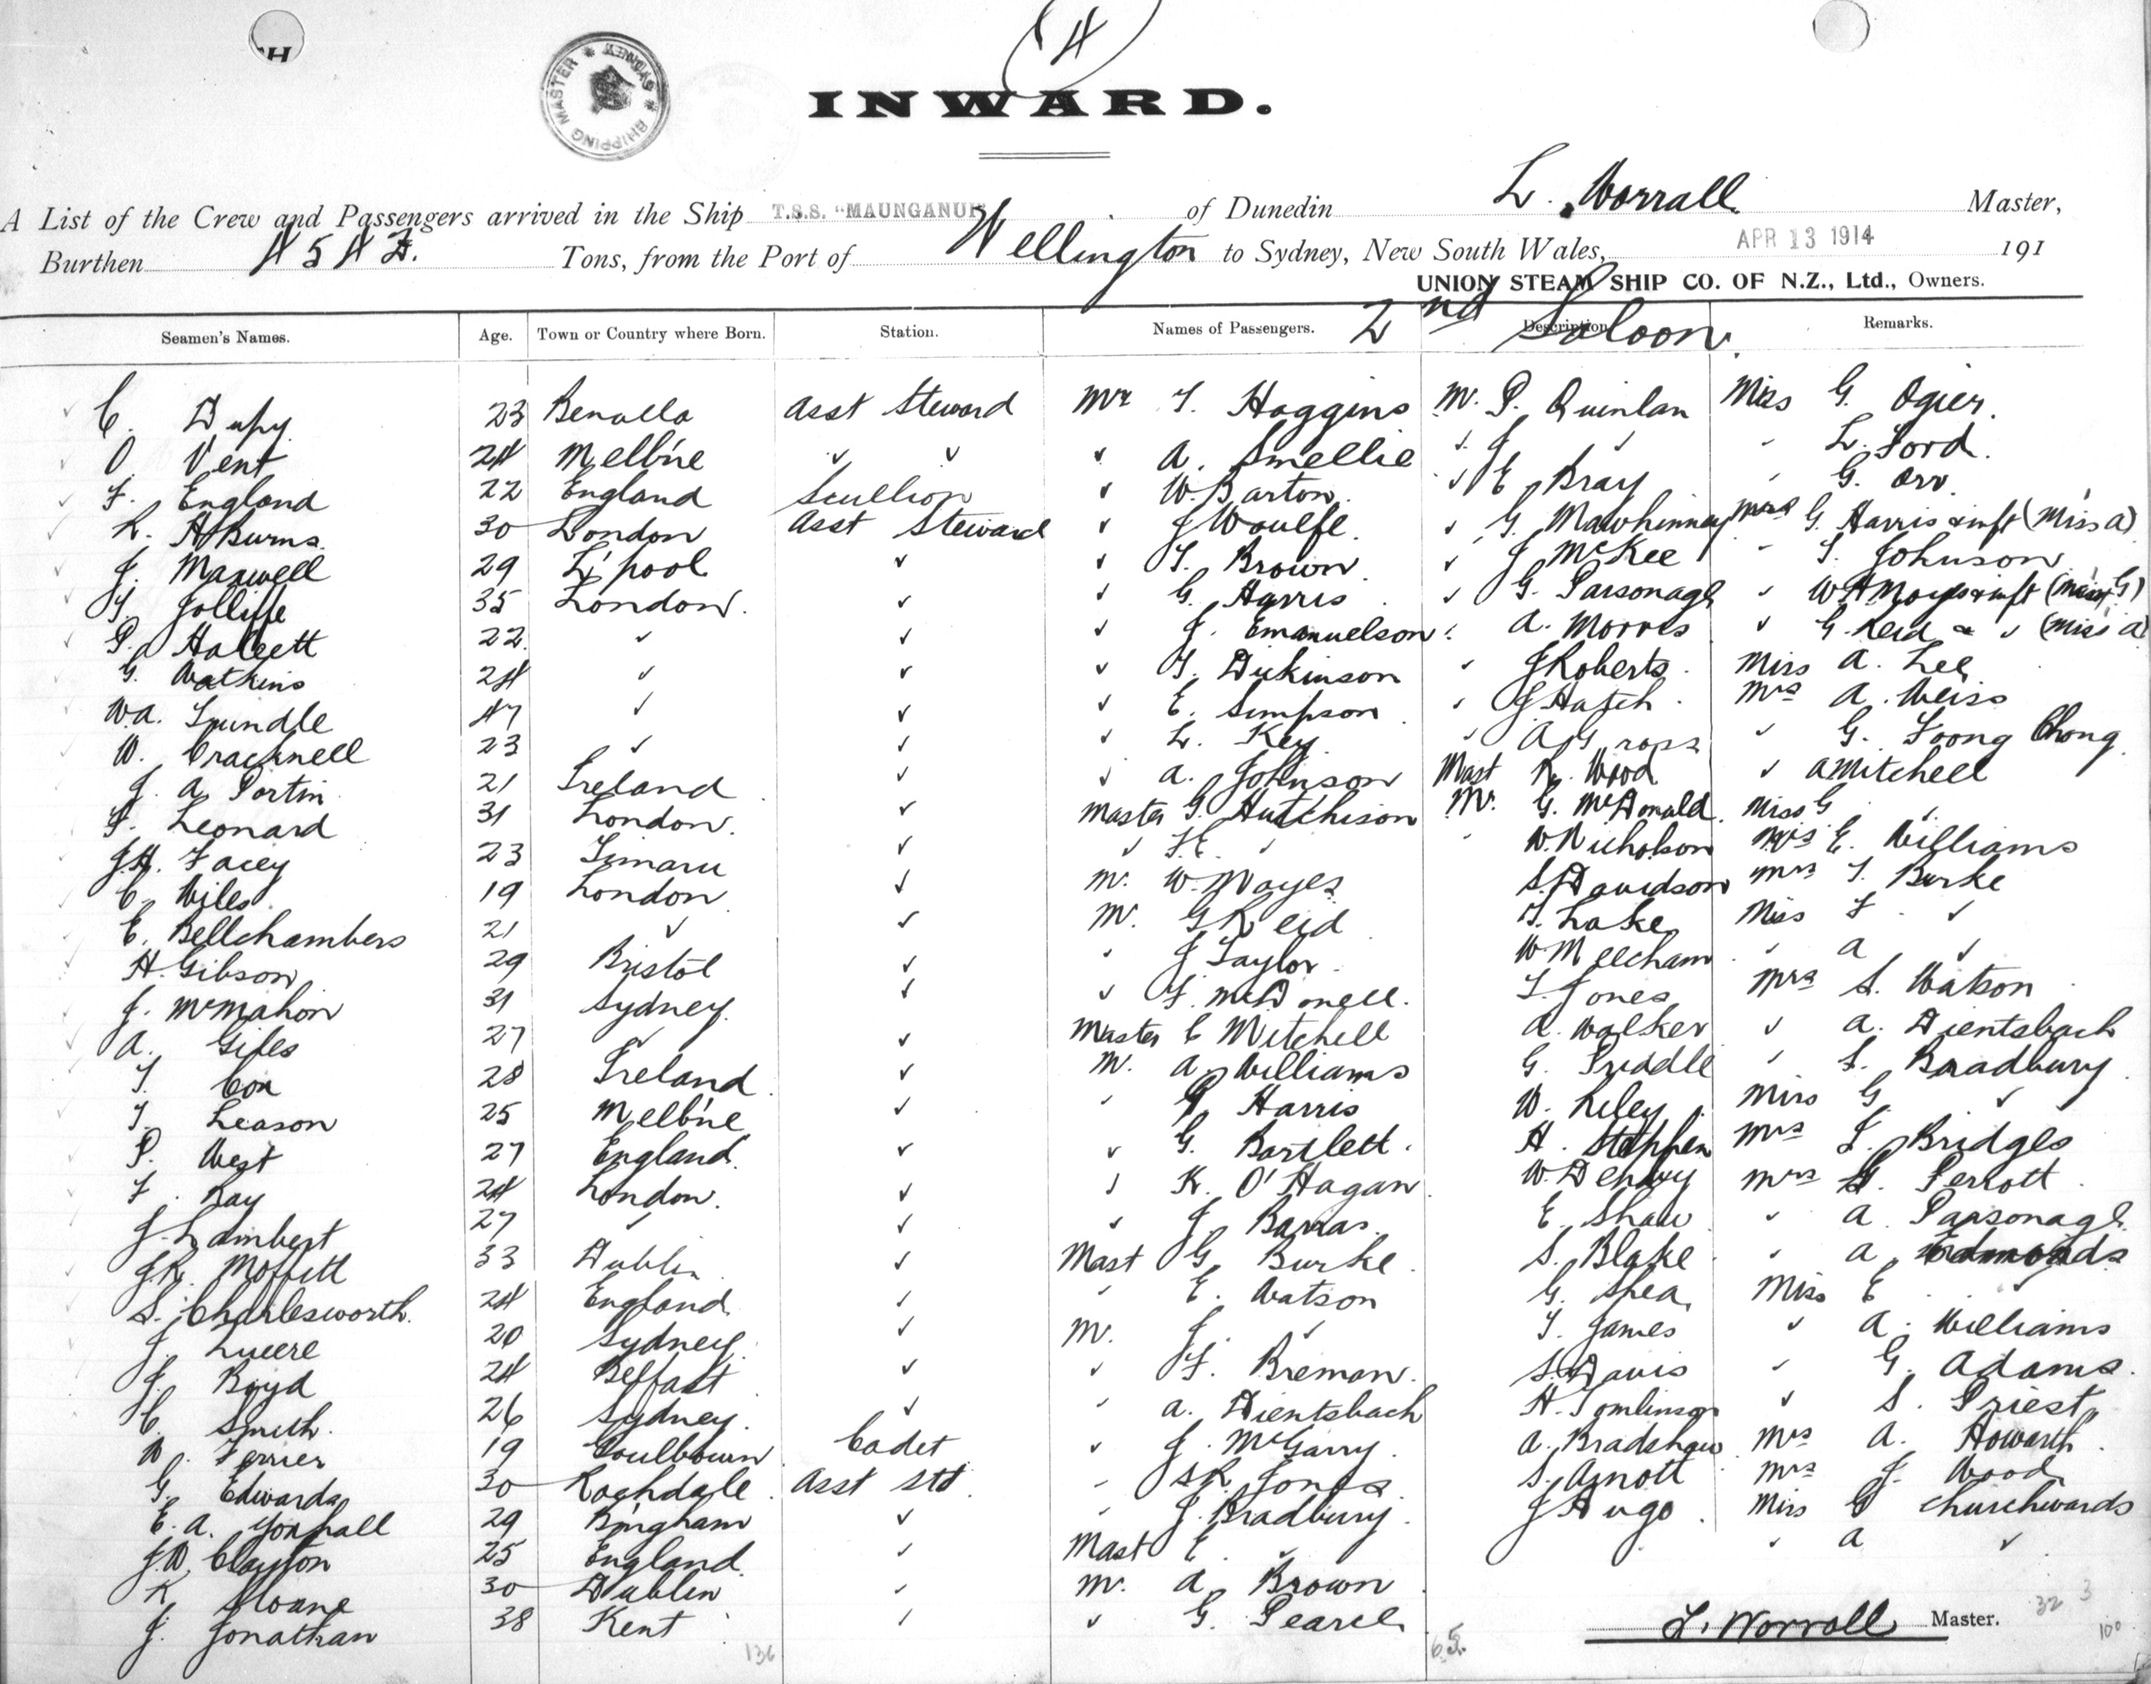 4
INWARD.
SHIPPING MASTER * SYDNEY *
A List of the Crew and Passengers arrived in the Ship T.S.S. "MAUNGANUI" of Dunedin L. Worrall Master,
Burthen 4543. Tons, from the Port of Wellington to Sydney, New South Wales, APR 13 1914 191
UNION STEAM SHIP CO. OF N.Z., Ltd., Owners.
2nd Saloon.
Seamen's Names. Age. Town or Country where Born. Station. Names of Passengers. Description Remarks.
C. Dupy 23 Benalla Asst Steward Mr T. Hoggins Mr. P. Quinlan Miss G. Ogier.
O Vent 24 Melb'ne " " " A. Smellie " J " " L. Ford.
F. England 22 England Scullion " W. Barton " E Bray " G. Orr
L. A Burns 30 London Asst Steward " J Woulfe " G. Mawhinney Mrs G. Harris & inft (Miss A)
J. Maxwell 29 L'pool " " T. Brown " J McKee " T. Johnson
T. Jolliffe 35 London. " " G. Harris " G. Parsonage " W H Mayes & inft (Miss G)
P. Hallett 22 " " " J. Emanuelson " A. Morris " G. Reid & " (Miss A)
G. Watkins 24 " " " T. Dickinson " J Roberts Miss A. Lee
W.A. Trundle 47 " " " E. Simpson " J Hatch Mrs A. Weiss
W. Cracknell 23 " " " L. Key " A G " G. Foong Chong
J. A Portin 21 Ireland " " A. Johnson Mast R. Wood " A Mitchell
P. Leonard 31 London. " Master G. Hutchison Mr. G. McDonald Miss G "
J.H. Facey 23 Timaru " " F.E. " " W. Nicholson Mrs E. Williams
C. Wiles 19 London " Mr. W. Mayes S. Davidson Mrs T. Burke
E. Bellchambers 21 " " Mr. G Reid T. Lake Miss F. "
H. Gibson 29 Bristol " " J Taylor W Meecham " A "
J. McMahon 31 Sydney. " " F. McDonell. T. Jones Mrs S. Watson
A. Giles 27 " " Master C Mitchell A. Walker " A. Dientsbach
T. Cox 28 Ireland " Mr. A. Williams G. Priddle " S. Bradbury
T. Leason 25 Melb'ne " " G. Harris W. Riley Miss G. "
P. West 27 England. " " G. Bartlett. H. Stephen Mrs F. Bridges
F. Ray 24 London. " " K. O'Hagan W. Denby Mrs G. Perrott
J. Lambert 27 " " " J Barras. E. Shaw " A. Parsonage
J.R. Moffitt 33 Dublin " Mast G Burke S. Blake " A. Edmonds
S. Charlesworth. 24 England " " E. Watson G. Shea Miss E "
J. Lucere 20 Sydney " Mr. J. " T. James " A. Williams
J. Boyd 24 Belfast " " F. Breman. S. Davis " G. Adams.
C. Smith. 26 Sydney. " " A. Dientsbach H. Tomlinson " S. Priest
W. Ferrier 19 Goulbourn Cadet " J. McGarry. A. Bradshaw Mrs A. Howarth.
G. Edwards 30 Rochdale Asst Std " S R Jones S. Arnott Mrs J. Wood
E. A. Yoxhall 29 B'ngham " " J. Bradbury. J Hugo Miss G Churchwards
J.W. Clayton 25 England " Mast E. " " A "
K Sloane 30 Dublin " Mr. A. Brown
J. Jonathan 38 Kent " " G. Pearce
L. Worrall Master.
136 65 32 3 100